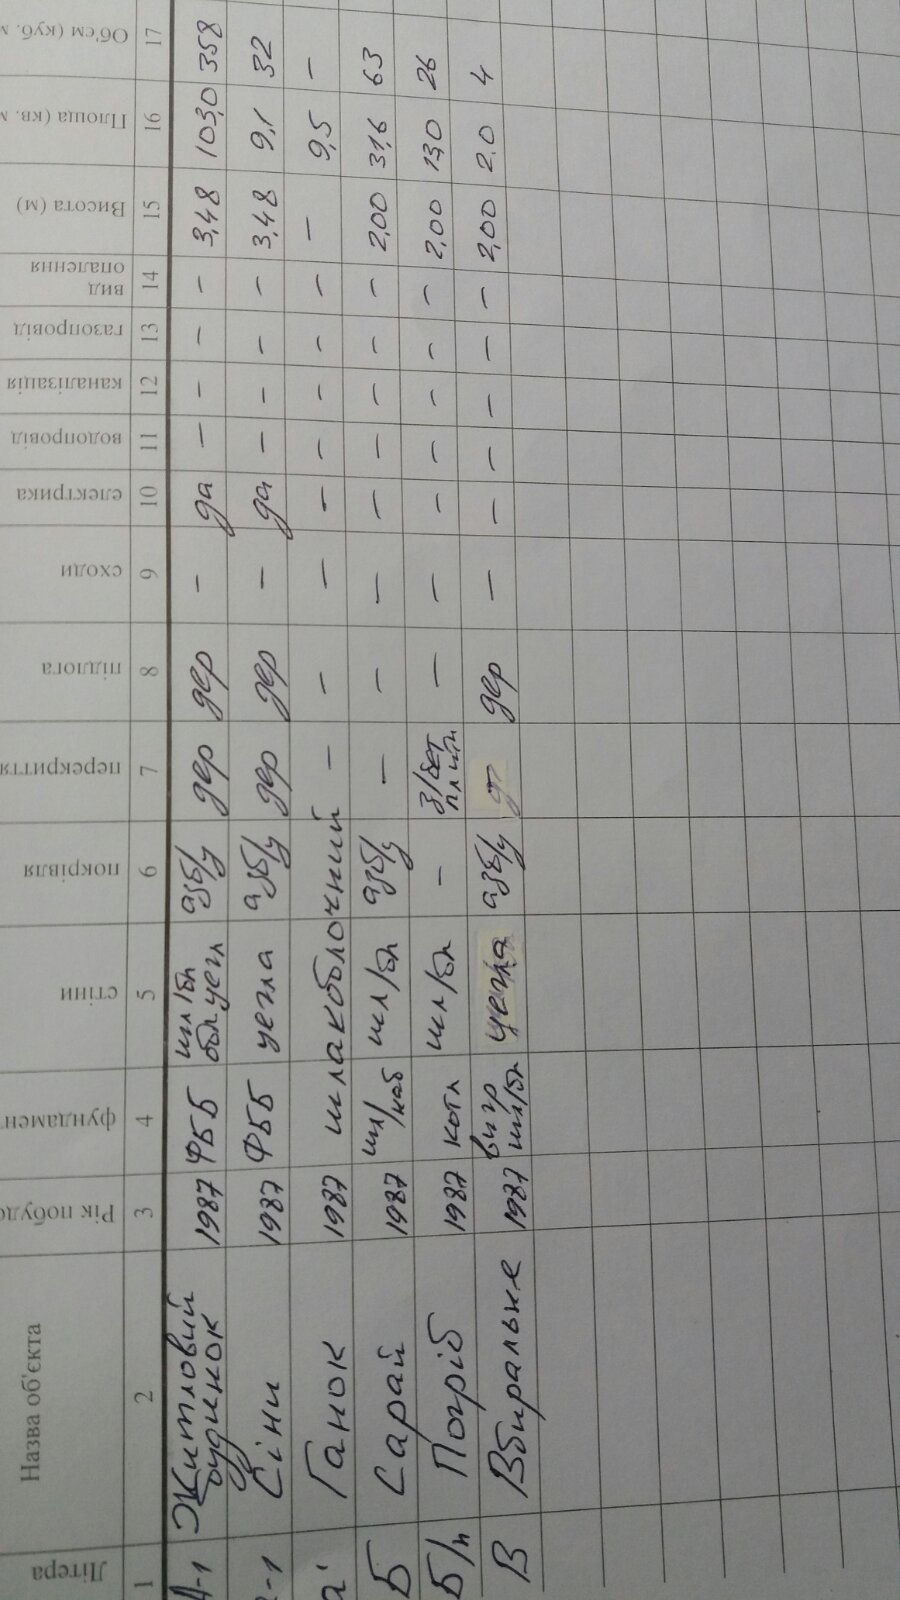 Літера Назва об'єкта Рік побудо фундамен стіни покрівля перекриття підлога сходи електрика водопровід каналізація газопровід вид опалення Висота (м) Площа (кв. м Об'єм (куб. м
1 2 3 4 5 6 7 8 9 10 11 12 13 14 15 16 17
А-1 Житловий будинок 1987 ФББ шл/бл обл цегл азб/ц дер дер - да - - - - 3,48 103,0 358
а-1 Сіни 1987 ФББ цегла азб/ц дер дер - да - - - - 3,48 9,1 32
а' Ганок 1987 шлакоблочний - - - - - - - - - 9,5 -
Б Сарай 1987 шл/наб шл/бл азб/ц - - - - - - - - 2,00 31,6 63
Б/п Погріб 1987 котл шл/бл - з/бет плити - - - - - - - 2,00 13,0 26
В Вбиральне 1987 вигр шл/бл цегла азб/ц дер - - - - - - 2,00 2.0 4